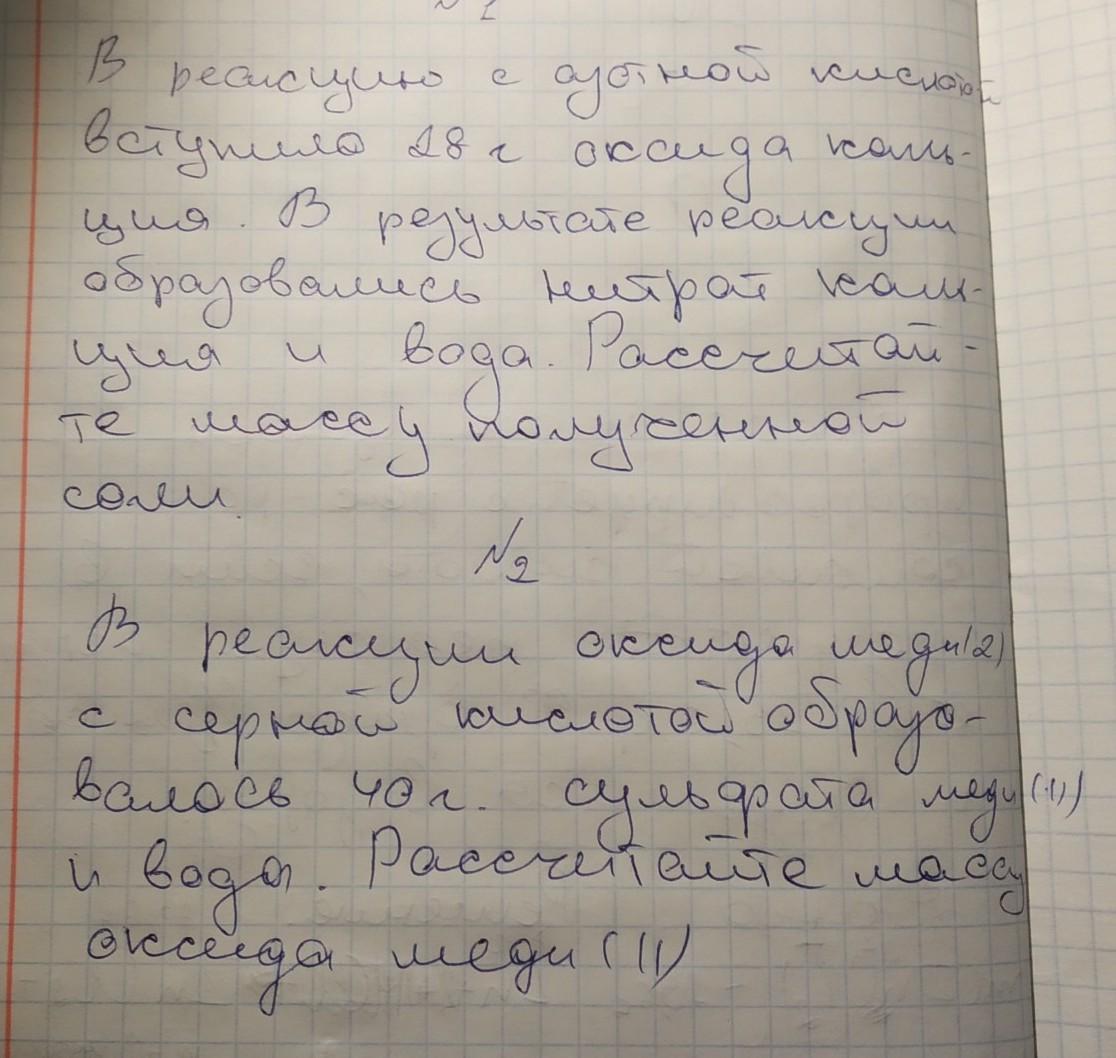 В реакцию с азотной кислотой
вступило 28 г оксида каль-
ция. В результате реакции
образовались нитрат каль-
ция и вода. Рассчитай-
те массу полученной
соли.
№2
В реакции оксида меди(2)
с серной кислотой образо-
валось 40 г. сульфата меди(II)
и вода. Рассчитайте массу
оксида меди (II)